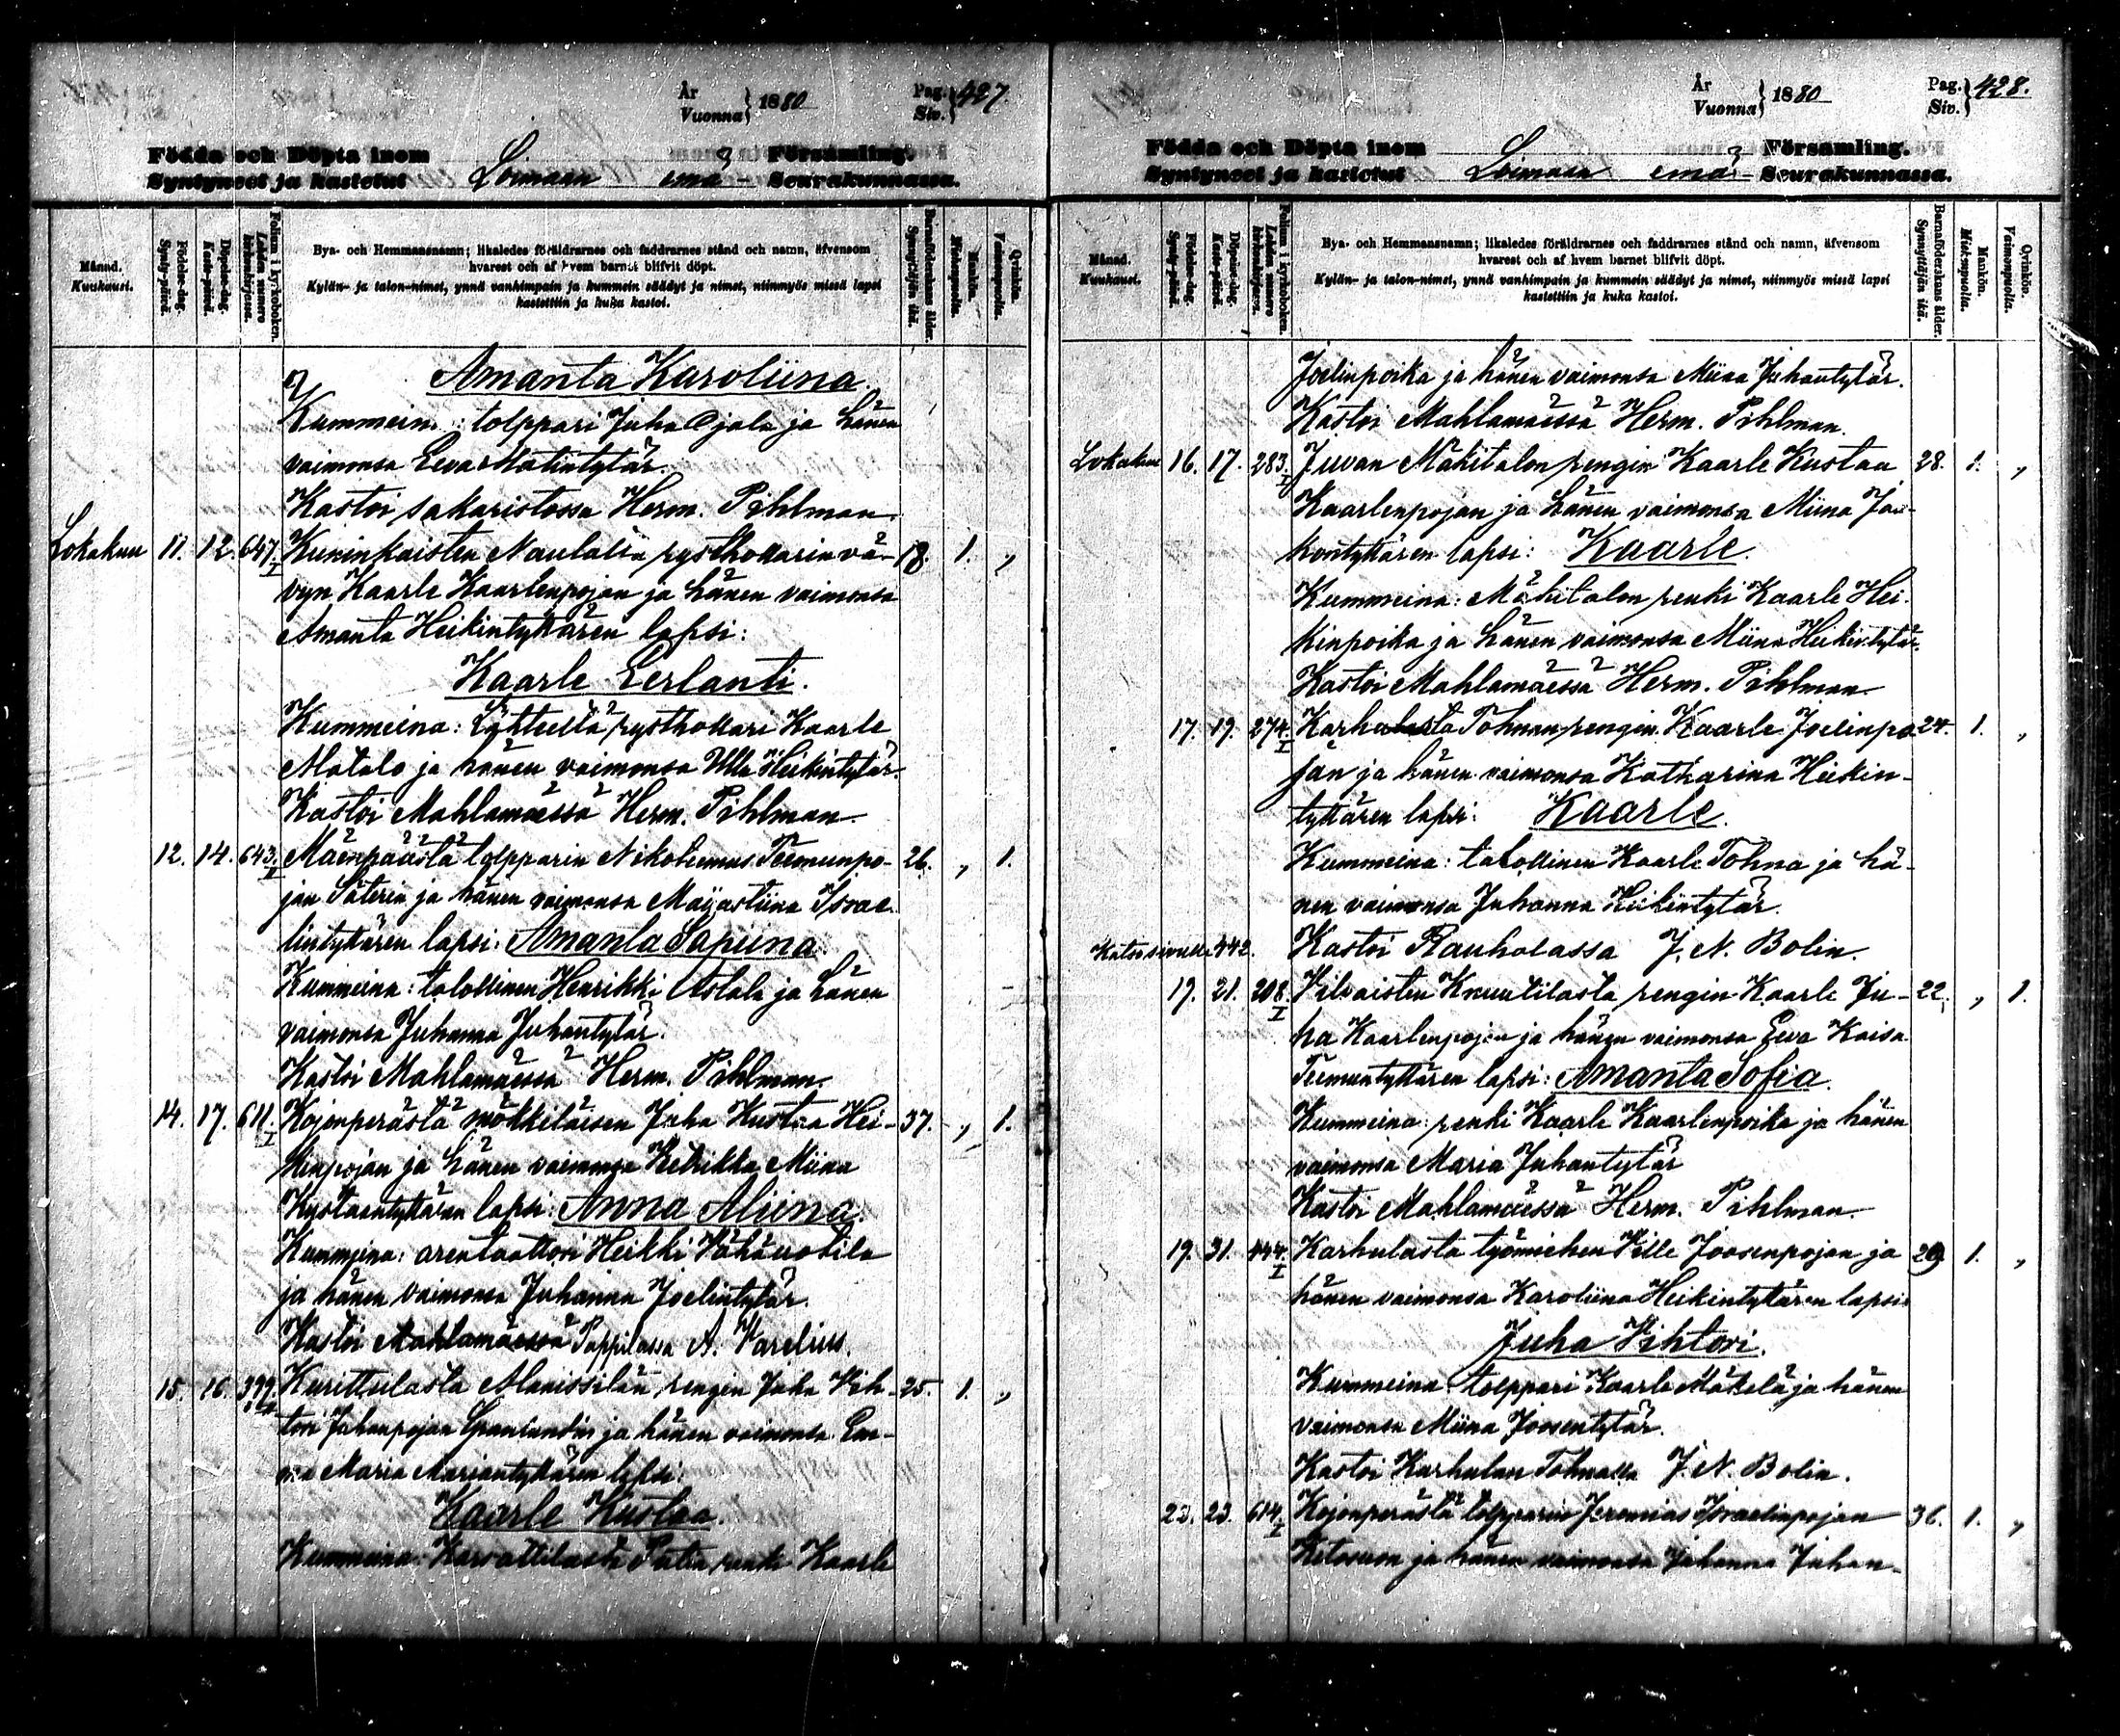 År
Vuonna } 1880
Pag.
Siv. } 427.
Födda och Döpta inom Församling.
Syntyneet ja kastetut Loimaan emä- Seurakunnassa.
Månad.
Kuukausi.
Födelse-dag.
Synty-päivä.
Döpelse-dag.
Kaste-päivä.
Folium i kyrkoboken.
Lehden numero kirkonkirjassa.
Bya- och Hemmansnamn; likaledes föräldrarnes och faddrarnes stånd och namn, äfvensom
hvarest och af hvem barnet blifvit döpt.
Kylän- ja talon-nimet, ynnä vanhimpain ja kummein säädyt ja nimet, niinmyös missä lapsi
kastettiin ja kuka kastoi.
Barnaföderskans ålder.
Synnyttäjän ikä.
Mankön.
Miehenpuolia.
Qvinkön.
Vaimonpuolia.
Amanta Karoliina.
Kummeina: tolppari Juha Ojala ja hänen
vaimonsa Eeva Matintytär.
Kastoi sakaristossa Herm. Pihlman.
Lokakuu 11. 12. 647. I Kuninkaisten Naulalta rysthollarin vä- 18. 1. „
vyn Kaarle Kaarlenpojan ja hänen vaimonsa
Amanta Heikintyttären lapsi:
Kaarle Eerlanti.
Kummeina: rysthollari Kaarle
Matala ja hänen vaimonsa Ulla Heikintytär.
Kastoi Mahlamäessä Herm. Pihlman.
12. 14. 643. Mäenpäästä tolpparin Nikotemus Teemunpo- 26. „ 1.
jan Säterin ja hänen vaimonsa Maijastiina Israe-
lintyttären lapsi: Amanta Sapiina.
Kummeina: talollinen Henrikki Astala ja hänen
vaimonsa Juhanna Juhantytär.
Kastoi Mahlamäessä Herm. Pihlman.
14. 17. 611. I Kojonperästä mökkiläisen Juha Kustaa Hei- 37. „ 1.
kinpojan ja hänen vaimonsa Retrikka Miina
Kustaantyttären lapsi: Anna Aliina.
Kummeina: arentaattori Heikki Vähäuotila
ja hänen vaimonsa Juhanna Joelintytär.
Kastoi Mahlamäessä Pappilassa A. Varelius.
15. 16. 399. Kurittulasta Alanissilän rengin Juha Vih- 25. 1. „
tori Juhanpojan Granlundin ja hänen vaimonsa Em-
ma Maria Mariantyttären lapsi:
Kaarle Kustaa.
Kummeina: renki Kaarle
År
Vuonna } 1880
Pag.
Siv. } 428.
Födda och Döpta inom Församling.
Syntyneet ja kastetut Loimaan emä- Seurakunnassa.
Månad.
Kuukausi.
Födelse-dag.
Synty-päivä.
Döpelse-dag.
Kaste-päivä.
Folium i kyrkoboken.
Lehden numero kirkonkirjassa.
Bya- och Hemmansnamn; likaledes föräldrarnes och faddrarnes stånd och namn, äfvensom
hvarest och af hvem barnet blifvit döpt.
Kylän- ja talon-nimet, ynnä vanhimpain ja kummein säädyt ja nimet, niinmyös missä lapsi
kastettiin ja kuka kastoi.
Barnaföderskans ålder.
Synnyttäjän ikä.
Mankön.
Miehenpuolia.
Qvinkön.
Vaimonpuolia.
Joelinpoika ja hänen vaimonsa Miina Juhantytär.
Kastoi Mahlamäessä Herm. Pihlman.
Lokakuu 16. 17. 283. I Juvan Mäkitalon rengin Kaarle Kustaa 28. 1. „
Kaarlenpojan ja hänen vaimonsa Miina Jaa-
kontyttären lapsi: Kaarle.
Kummeina: Mäkitalon renki Kaarle Hei-
kinpoika ja hänen vaimonsa Miina Heikintytär.
Kastoi Mahlamäessä Herm. Pihlman.
17. 19. 274. I Karhulasta Tohnan rengin Kaarle Joelinpo- 24. 1. „
jan ja hänen vaimonsa Katharina Heikin-
tyttären lapsi: Kaarle.
Kummeina: talollinen Kaarle Tohna ja hä-
nen vaimonsa Juhanna Heikintytär.
Katso sivulle 442. Kastoi Rauholassa J. N. Bolin.
19. 21. 208. I Vilvaisten Knuutilasta rengin Kaarle Ju- 22. „ 1.
ha Kaarlenpojan ja hänen vaimonsa Eeva Kaisa
Teemuntyttären lapsi: Amanta Sofia.
Kummeina: renki Kaarle Kaarlenpoika ja hänen
vaimonsa Maria Juhantytär
Kastoi Mahlamäessä Herm. Pihlman.
19. 31. 444. I Karhulasta työmiehen Ville Joosenpojan ja 29. 1. „
hänen vaimonsa Karoliina Heikintyttären lapsi:
Juha Vihtori.
Kummeina: tolppari Kaarle Mäkelä ja hänen
vaimonsa Miina Joosentytär.
Kastoi Karhulan Tohnalla J. N. Bolin.
22. 23. 614. I Kojonperästä tolpparin Jeremias Israelinpojan 36. 1. „
Ketosuon ja hänen vaimonsa Juhanna Juhan-